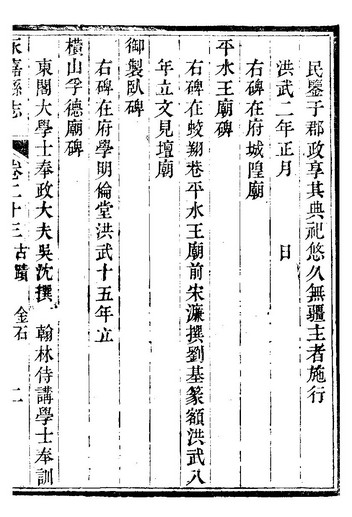 民鑒于郡政享其典祀悠久無疆主者施行
洪武二年正月　　日
右碑在府城隍廟
平水王廟碑
右碑在蛟翔巷平水王廟前宋濂撰劉基篆額洪武八
年立文見壇廟
御製臥碑
右碑在府學明倫堂洪武十五年立
橫山孚德廟碑
東閣大學士奉政大夫吳沈撰　翰林侍講學士奉訓
永嘉縣志　卷二十三　古蹟　金石　二